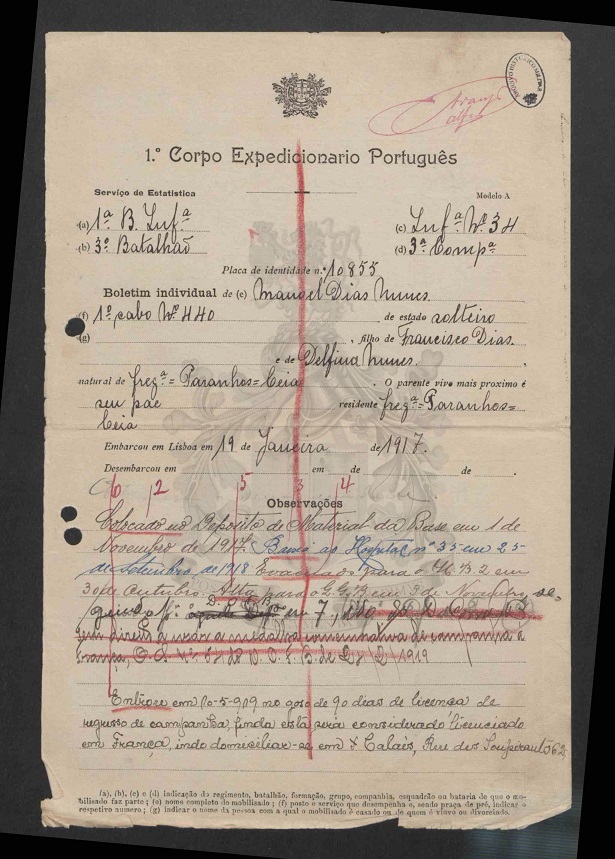 ARQUIVO HISTORICO MILITAR
1.º Corpo Expedicionario Português
Serviço de Estatistica
Modelo A
(a) 1ª B. Infª
(c) Infª Nº 34
(b) 3º Batalhão
(d) 3ª Compª
Placa de identidade n.º 10855
Boletim individual de (e) Manoel Dias Nunes
(f) 1º cabo Nº 440 de estado solteiro
(g) , filho de Francisco Dias
e de Delfina Nunes.
natural de fregª = Paranhos = Ceia . O parente vivo mais proximo é
seu pae residente fregª = Paranhos =
Ceia
Embarcou em Lisboa em 19 de Janeiro de 1917.
Desembarcou em em de de .
6 2 5 3 4
Observações
Colocado no Deposito de Material da Base em 1 de
Novembro de 1917. Baixa ao Hospital nº 35 em 25
de Setembro de 1918 Evacuado para o H B 2 em
30 de Outubro. Alta para o em 3 de Novembro, se-
guindo em 7,
Tem direito a usar a medalha comemorativa da campanha
França, O. S. Nº do C. E. P. de 1919
Entrou em 10-5-919 no goso de 90 dias de licença de
regresso de campanha, finda esta será considerado licenciado
em França, indo domiciliar-se em Calais, Rue des 62
(a), (b), (c) e (d) indicação do regimento, batalhão, formação, grupo, companhia, esquadrão ou bataria de que o mo-
bilisado faz parte; (e) nome completo do mobilisado; (f) posto e serviço que desempenha e, sendo praça de pré, indicar o
respetivo numero; (g) indicar o nome da pessoa com a qual o mobilisado é casado ou de quem é viuvo ou divorciado.